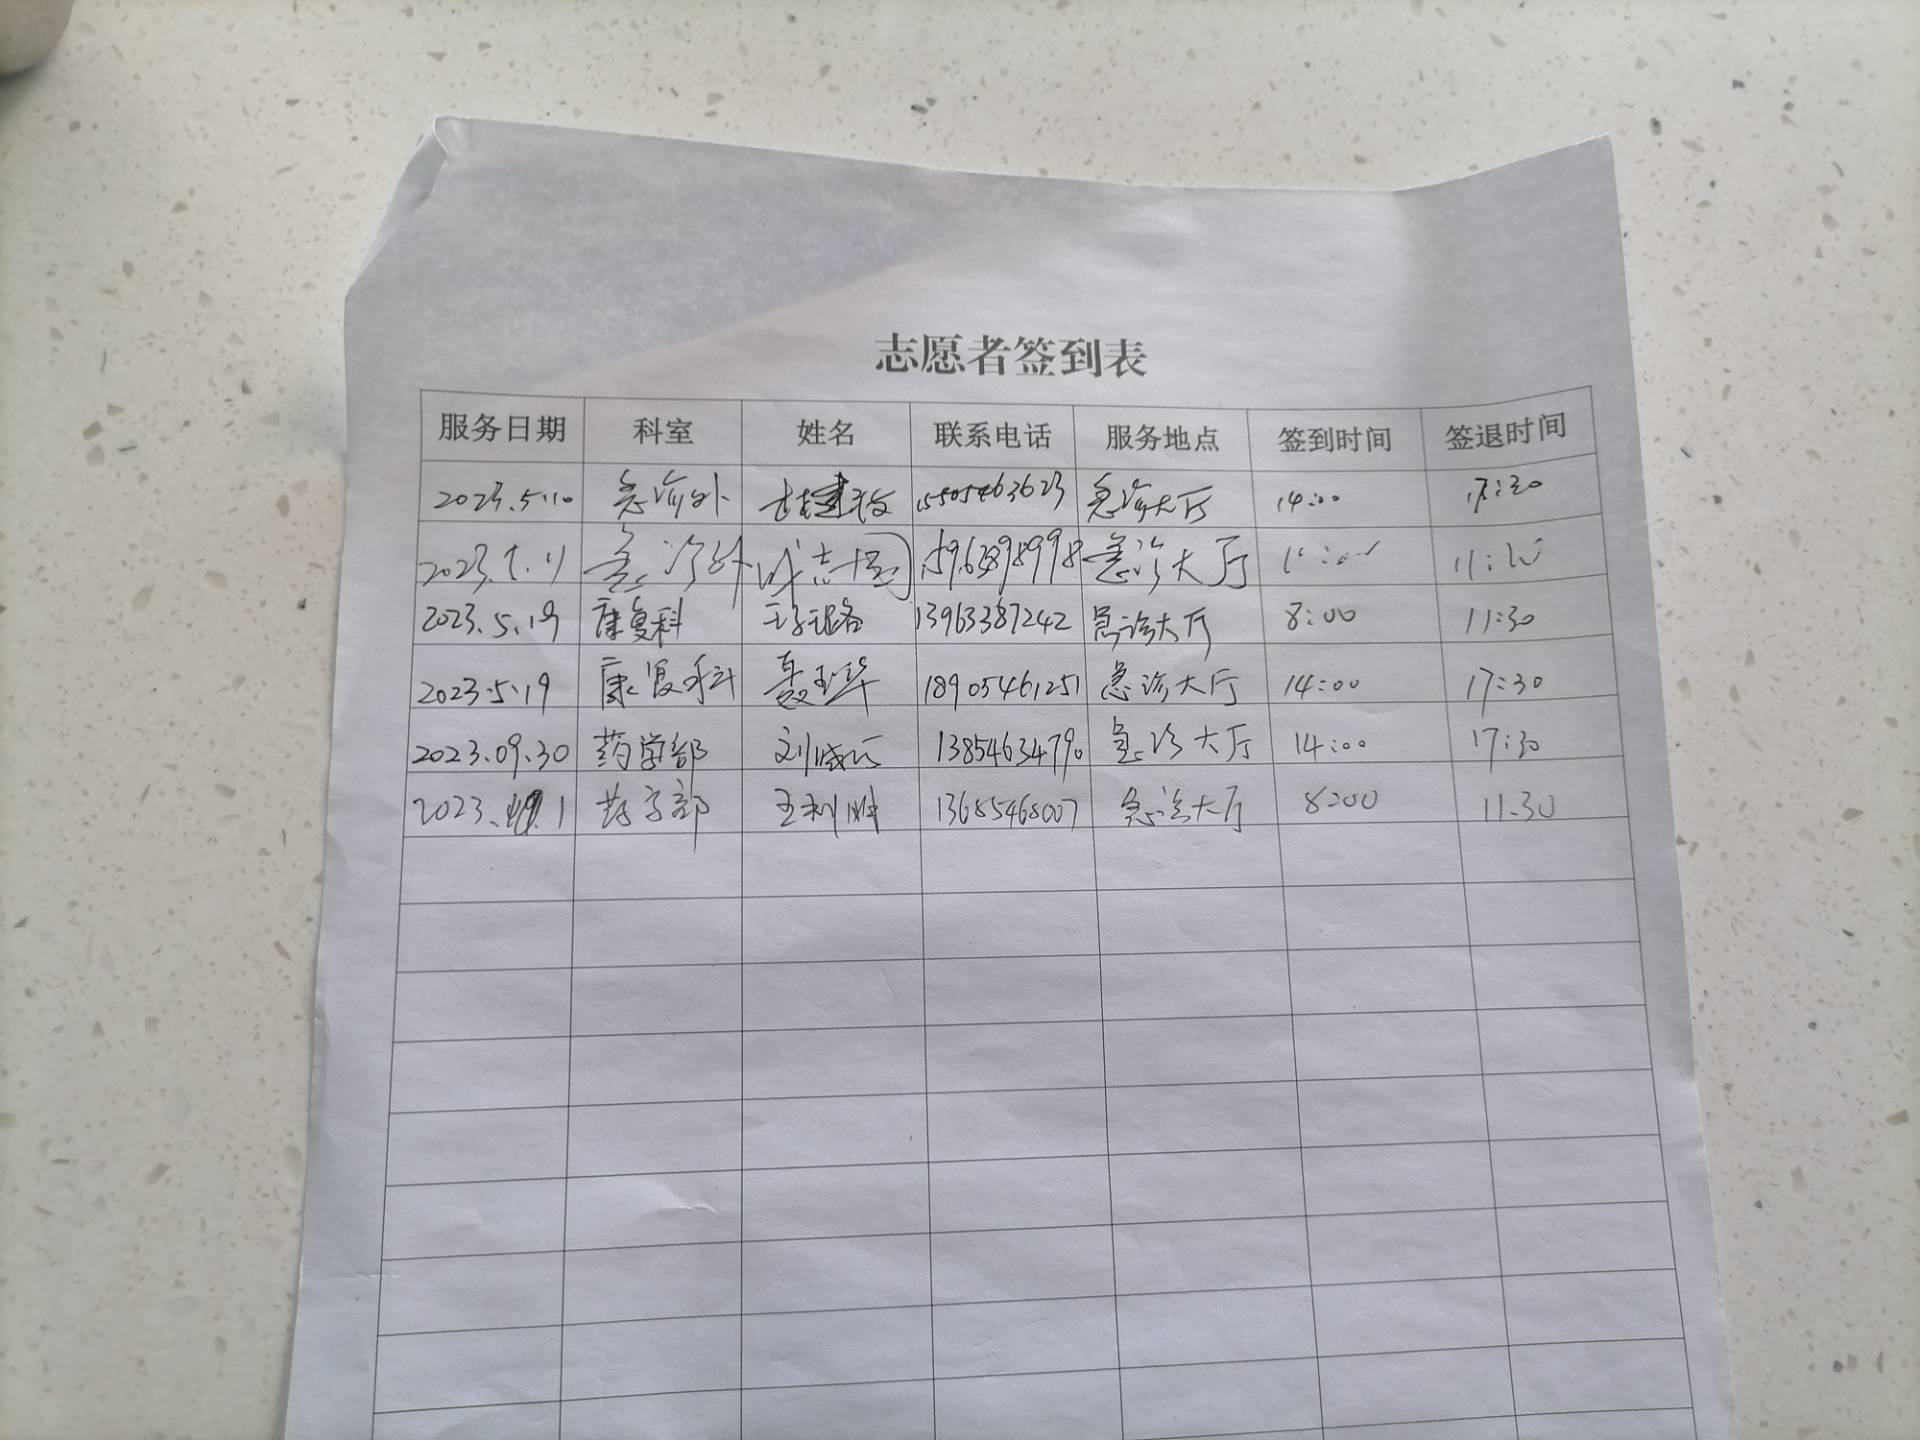 志愿者签到表
服务日期 科室 姓名 联系电话 服务地点 签到时间 签退时间
2023.5.10 急诊外 15505463623 急诊大厅 14:00 17:30
2023. 急诊外 急诊大厅
2023.5.19 康复科 13963387242 急诊大厅 8:00 11:30
2023.5.19 康复科 聂玉华 18905461251 急诊大厅 14:00 17:30
2023.09.30 药学部 刘 13854634790 急诊大厅 14:00 17:30
2023. 1 药学部 王利胜 13685468007 急诊大厅 8:00 11.30